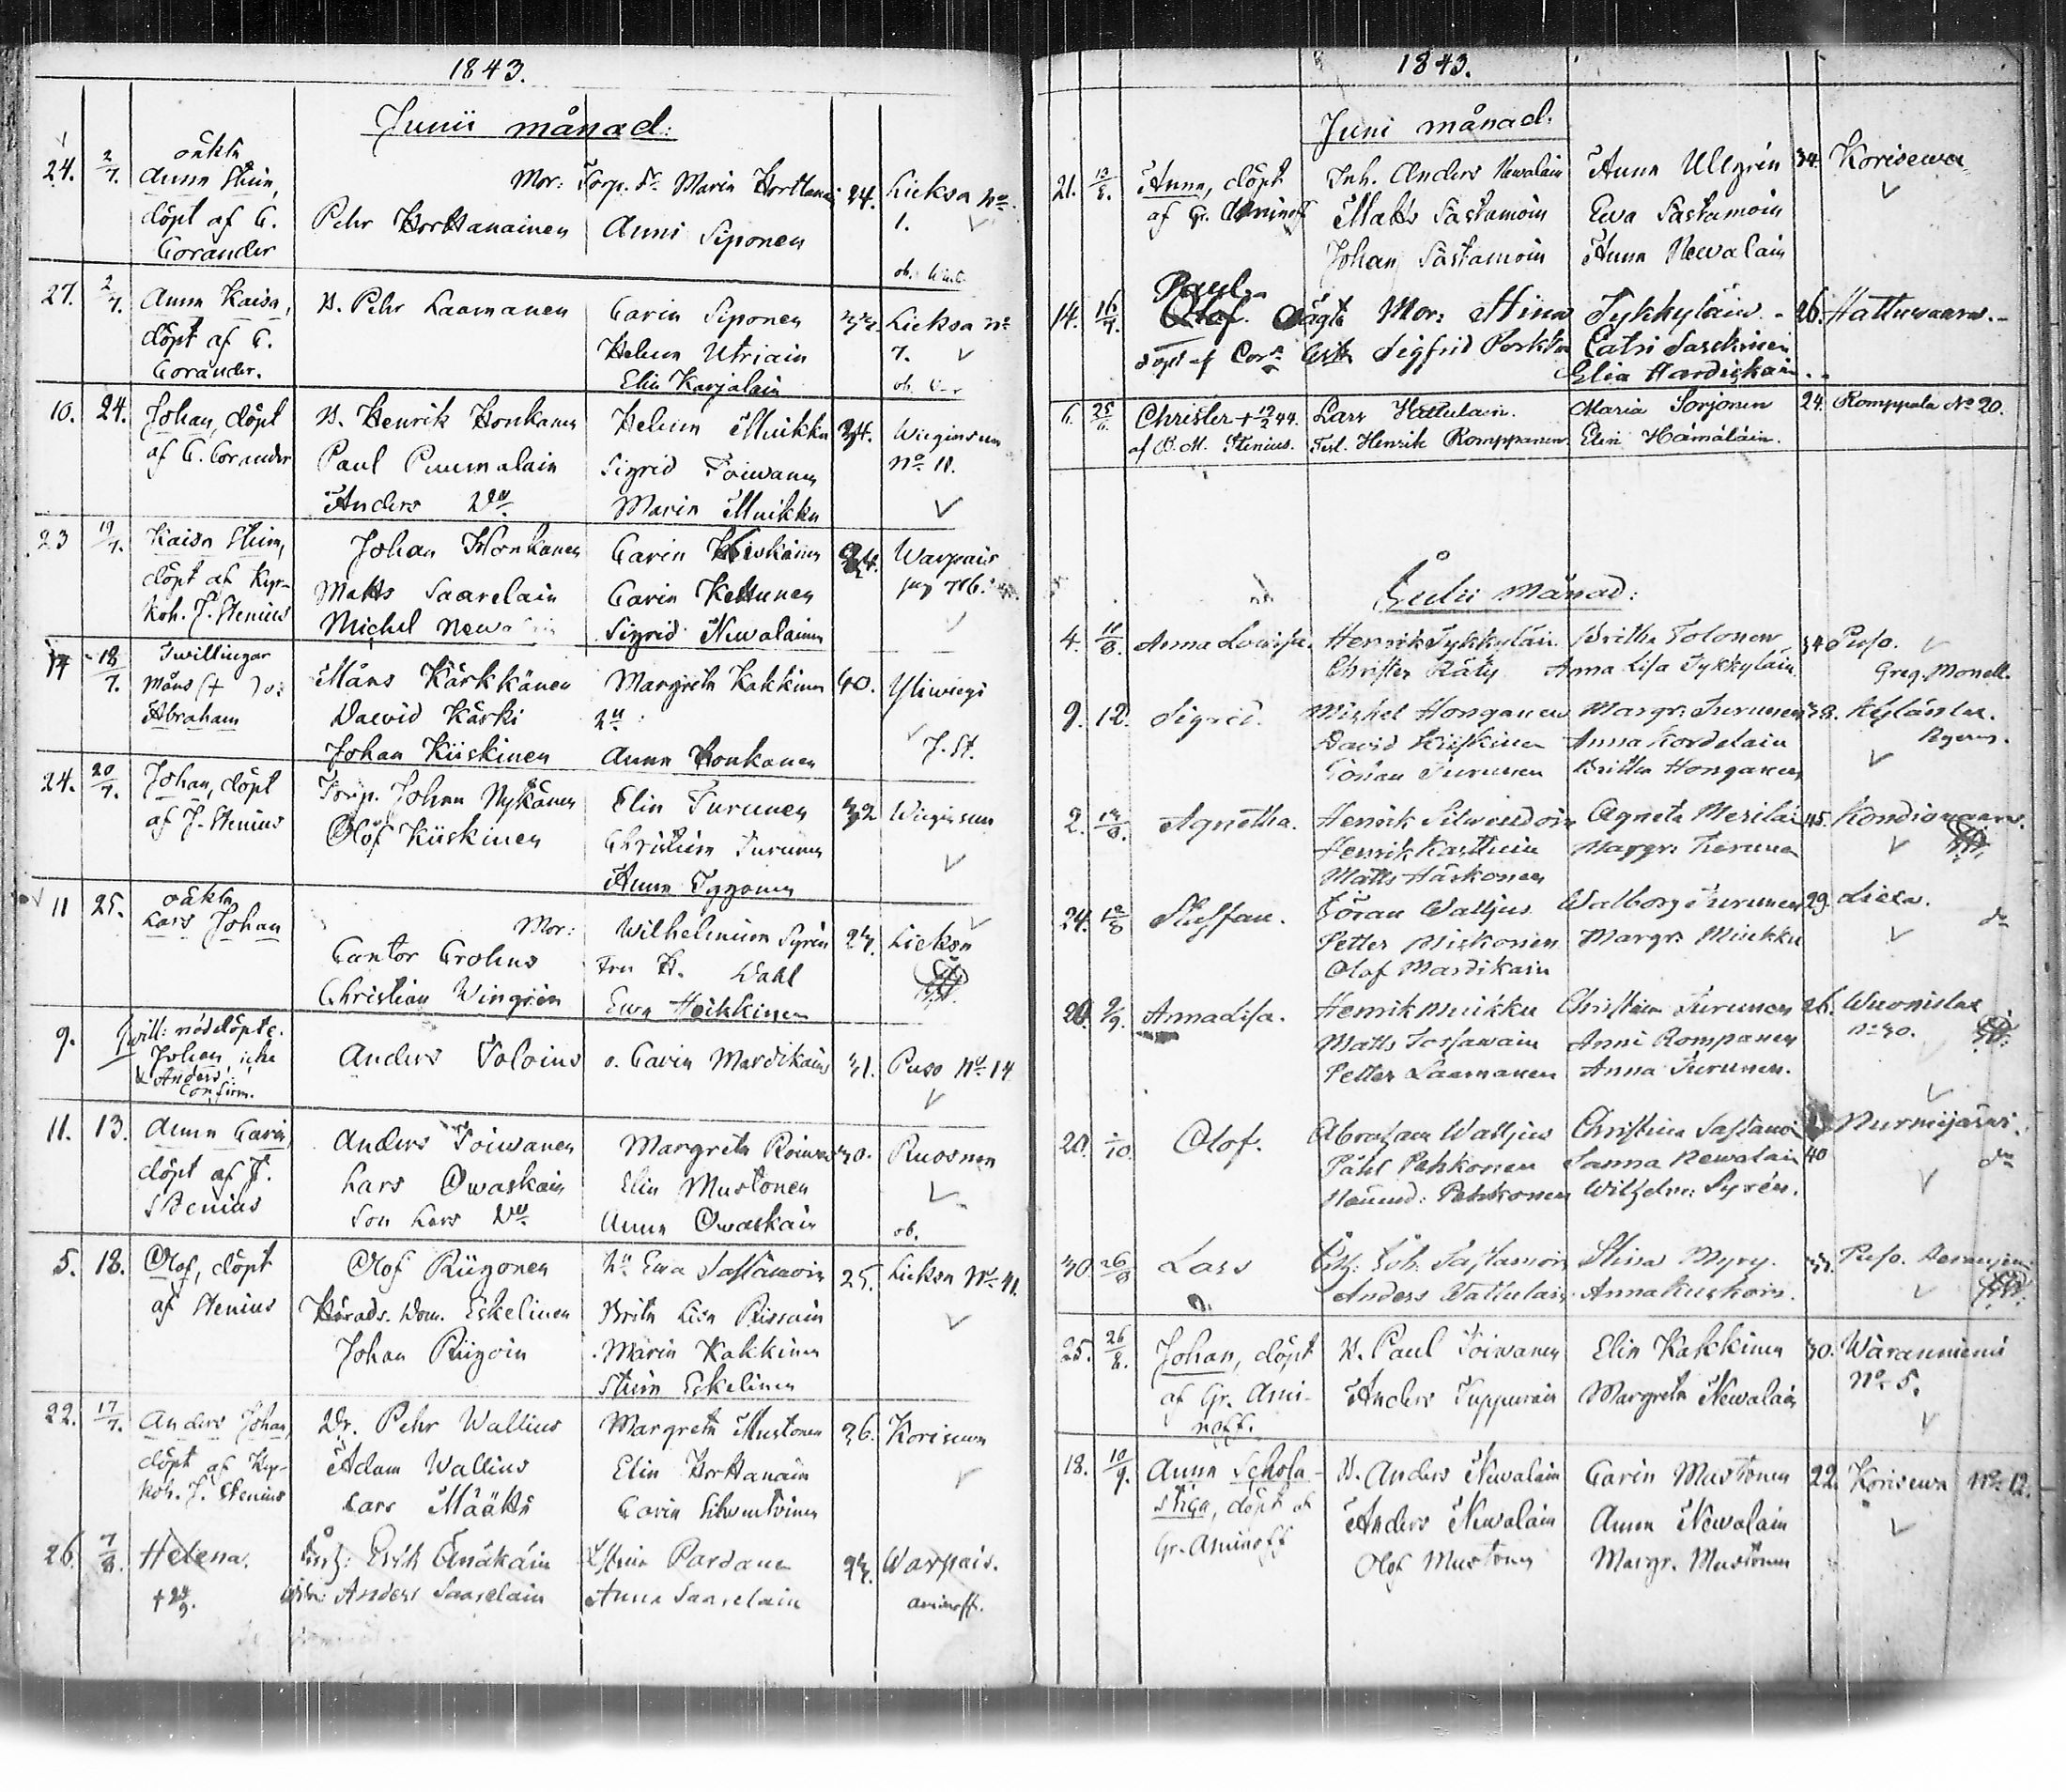 1843.
Junii månad:
oäkta
24. 2/7. Anna Stina, Mor: Torp. Dr Maria Horttanai 24. Lieksa No
döpt af C. Pehr Horttanainen Anni Siponen 1.
Corander
ob.
27. 2/7. Anna Kaisa, B. Pehr Laamanen Carin Siponen Lieksa No
döpt af C. Helena Utriain 7.
Corander. Elin Karjalain ob.
10. 24. Johan, döpt B. Henrik Honkanen Helena Muikku 34. Wieginsuu
af C. Corander Paul Puumalain Sigrid Toiwanen No 11.
Anders Do Maria Muikku
23 19/7. Kaisa Stina, Johan Honkanen Carin Kiiskinen 24. Warpais
döpt af Kyr- Matts Saarelain Carin Kettunen
koh. J. Stenius Michel Sigrid Newalainen
Twillingar
18/7. Måns (+ ) o: Måns Kärkkänen Margreta Kakkinen 40. Yliwiegi
Abraham Dawid Kärki
Johan Kiiskinen Anna Honkanen J. St.
24. 20/7. Johan, döpt Torp. Johan Nykänen Elin Turunen 32 Wieginsuu
af J. Stenius Olof Kiiskinen Christina Turunen
Anna Iggonen
11 25. oäkta
Lars Johan Mor: Wilhelmina Syrén 27. Lieksa
Cantor Crohns Fru H. Dahl
Christian Wingrén Ewa Heikkinen
9. Twill: nöddöpte.
Johan, icke Anders Toloins o. Carin Mardikain 31. Puso No 14
& Anders
Confirm.
11. 13. Anna Carin, Anders Toiwanen Margreta Roiwas 30. Ruosman
döpt af J. Lars Owaskain Elin Mustonen
Stenius Son Lars Do Anna Owaskain
ob.
5. 18. Olof, döpt Olof Piigonen Hu Ewa Sassamoin 25. Lieksa No 41.
af Stenius Härads. Dom. Eskelinen Brita Lisa Piissain
Johan Piigoin Maria Kakkinen
Stina Eskelinen
22. 17/7. Anders Johan, Dr. Pehr Wallius Margreta Mustonen 36. Korisewa
döpt af Kyr- Adam Wallius Elin Horttanain
koh. J. Stenius Lars Määttä Carin
26. 7/8. Helena. Erik Enäkäin Stina Pardanen Warpais.
Anders Saarelain Anna Saarelain aminoff.
1843.
Juni månad.
21. 13/8. Anna, döpt Inh. Anders Newalain Anna Ullgrén 34. Korisewa
af Gr. Aminoff Matts Sastamoin Ewa Sastamoin
Johan Sastamoin Anna Newalain
Paul
14. 16/7. Olof. Oägta Mor: Stina Tykkyläin. 26. Hattuwaara.
döpt af Cor. Sigfrid Catri Sarckinen
Elia Hardickain.
6. 25/6. Christer + 12/2 44. Lars Hattulain. Maria Sorjonen 24. Romppala No 20.
af B. M. Stenius. Henrik Romppanen Elin Hämäläin.
Julii Månad:
4. Anna Lovisa. Henrik Tykkyläin. Britha Tolonen 34 Puso.
Christer Räty Anna Lisa Tykkyläin. Greg. Monell.
9. 12. Sigrid. Michel Honganen Margr: Turunen 38. Kylänlax.
David Kiiskinen Anna Kordelain
Göran Turunen Britha Honganen
2. Agnetha. Henrik Silwendoin Agneta Meriläi 45. Kondiowaara.
Henrik Karttuin Margr: Turunen
Matts Härkonen
24. Staffan. Göran Walljus Walborg Turunen 29. Liexa.
Petter Miskonen Margr: Miukku do
Olof Mardikain
26. 2/9. Anna Lisa. Henrik Muikku Christina Turunen 26. Wuonislax
Matts Tossawain Anni Rompanen No 30.
Petter Laamanen Anna Turunen.
20. 1/10 Olof. Abraham Walljus Christina Sastamoi Nurmijärvi.
Påhl Pehkonen Sanna Newalain 40 do
Pehkonen Wilhelm: Syrén.
30. 26/8 Lars Joh. Sastamoin Stina Myry. Puso.
Anders Wattulain Anna Kuckoin.
25. 26/8. Johan, döpt B. Paul Toiwanen Elin Kakkinen 30. Wäranniemi
af Gr. Ami- Anders Tuppurain Margreta Newalain No 5.
noff.
18. 10/9. Anna Schola- B. Anders Newalain Carin Mustonen 22. Korisewa No 12.
stiga, döpt af Anders Newalain Anna Newalain
Gr. Aminoff Olof Mustonen Margr. Mustonen